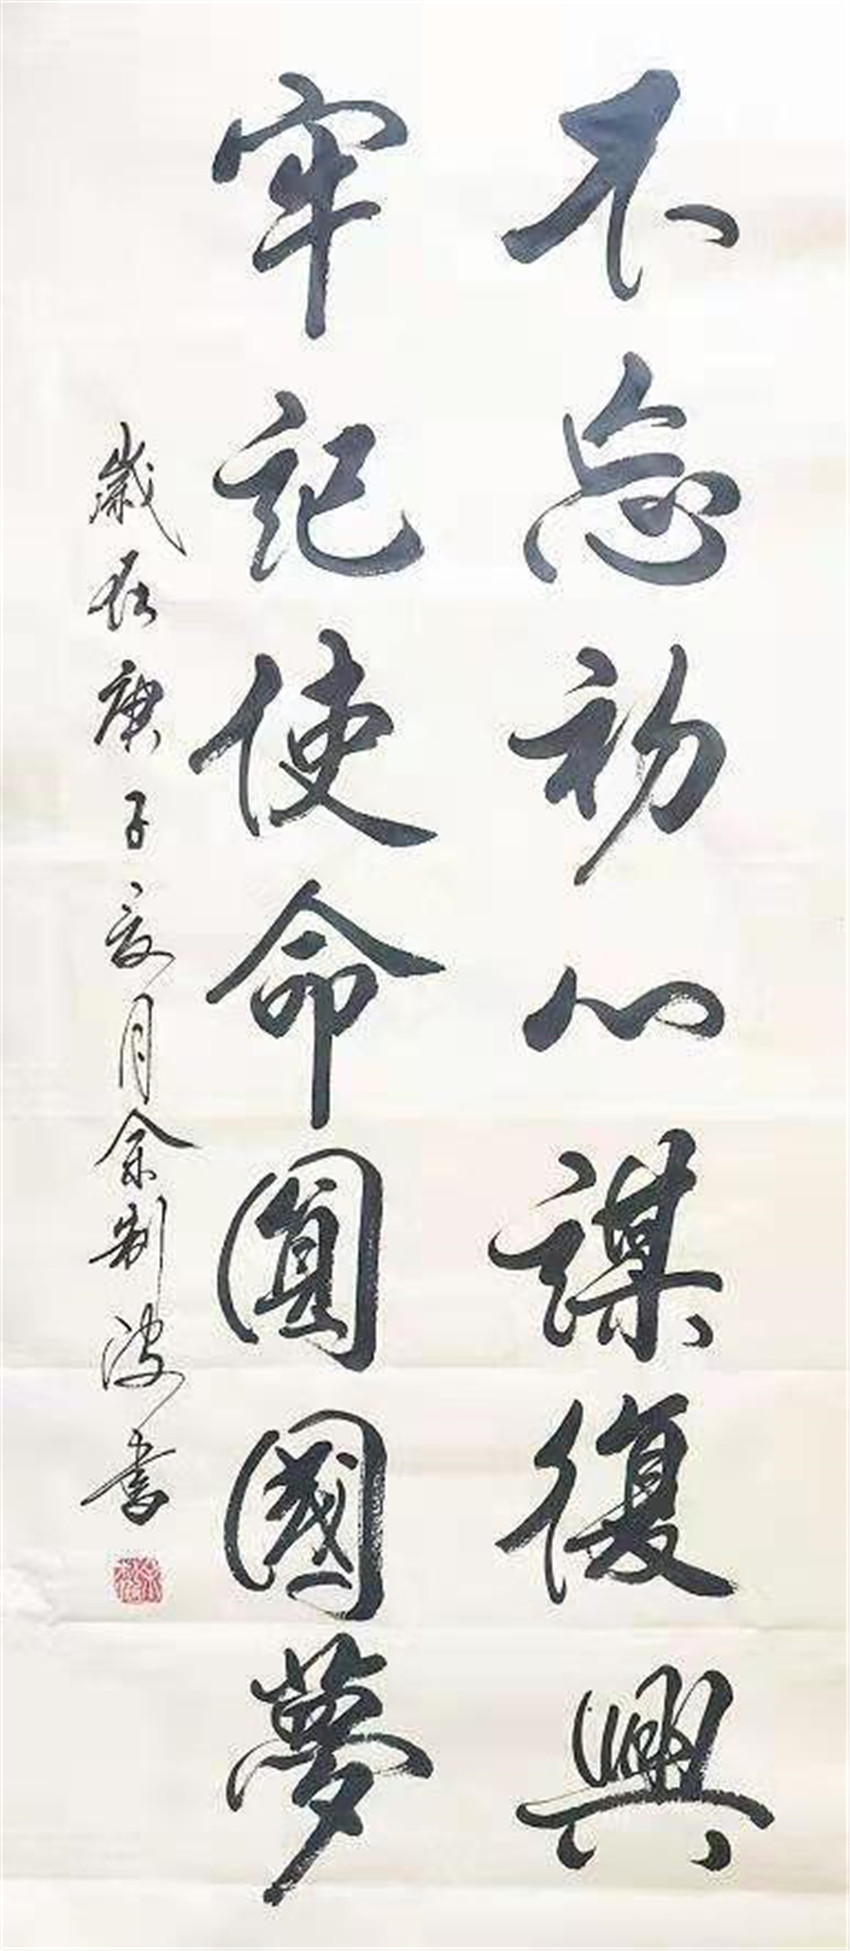 不忘初心謀復興
牢記使命圓國夢
歲在庚子夏月余制波書